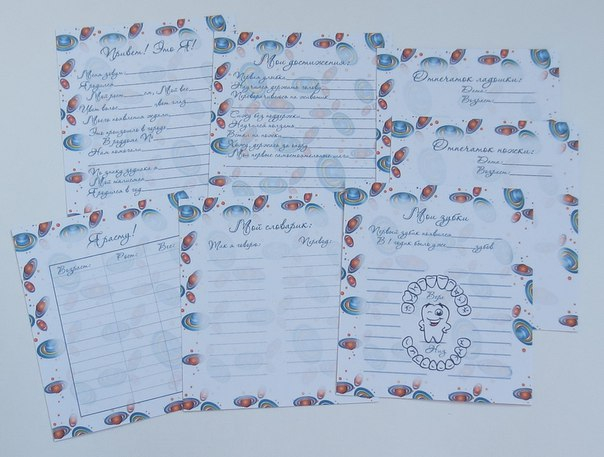 Привет! Это Я!
Меня зовут
Я родился
Мой рост см, Мой вес
Цвет волос, цвет глаз
Моего появления ждали
Это произошло в городе
В роддоме №
Нам помогали
По знаку зодиака я
Моё имя
Я родился в год
Мои достижения:
Первая улыбка
Научился держать голову
Переворачиваюсь на животик
Сижу без поддержки
Научился ползать
Встал на ножки
Хожу, держась за опору
Мои первые самостоятельные шаги
Отпечаток ладошки:
Дата
Возраст
Отпечаток ножки:
Дата
Возраст
Я расту!
Возраст: Рост: Вес:
Мой словарик:
Так я говорю: Перевод:
Мои зубки
Первый зубик появился
В 1 годик было уже зубов
Верх
Низ